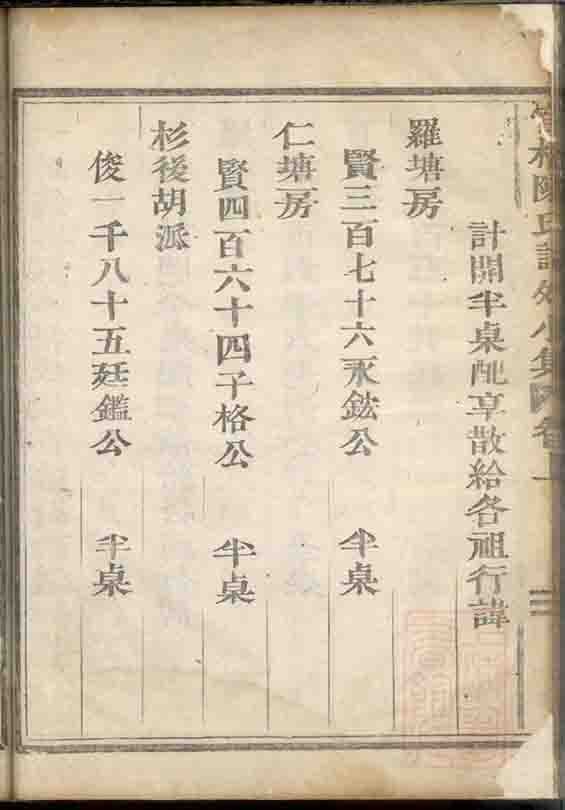 陳氏譜外小集
計開半桌配享散給各祖行諱
羅塘房
賢三百七十六永鈜公 半桌
仁塘房
賢四百六十四子格公 半桌
杉後胡派
俊一千八十五廷鑑公 半桌